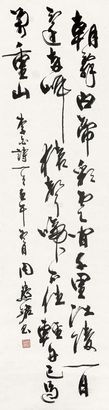 朝辭白帝彩雲間千里江陵一日
還兩岸猿聲啼不住輕舟已過
萬重山
李白詩 年 月 周慧珺書